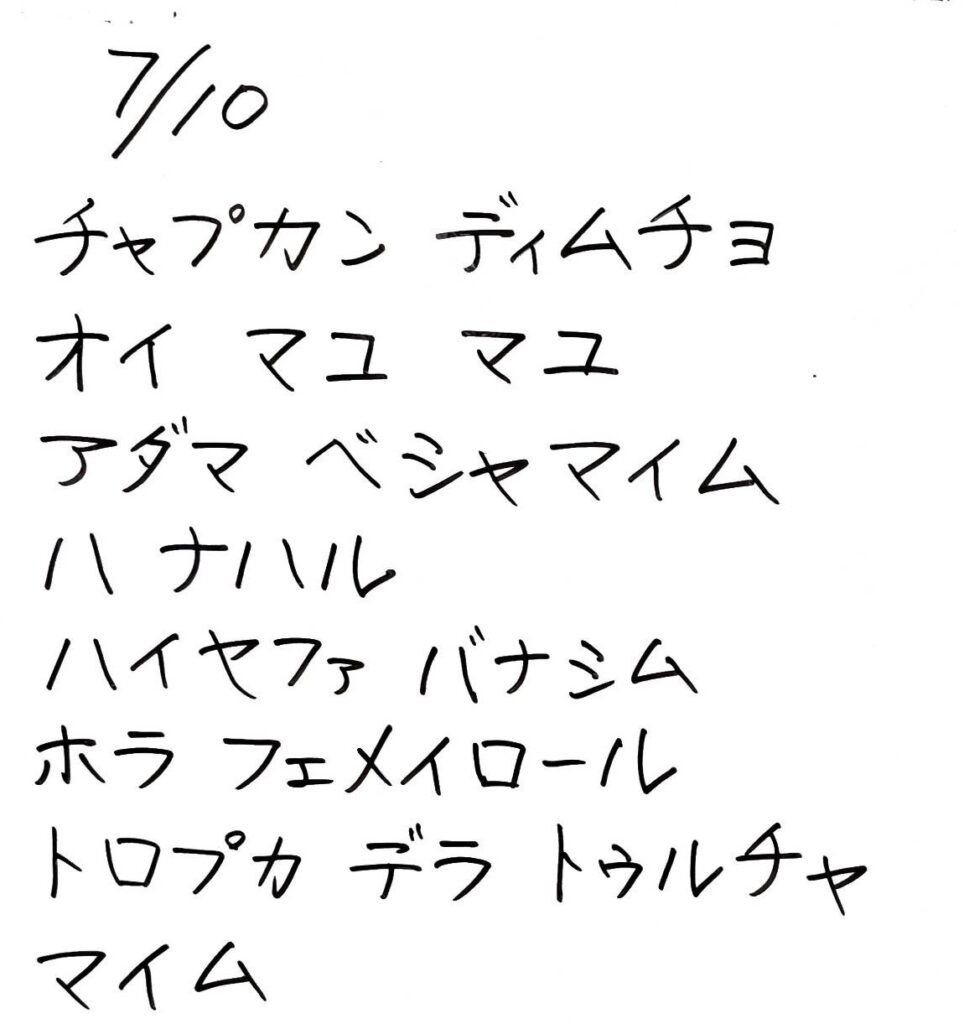 7/10
チャプカン ディムチョ
オイ マユ マユ
アダマ ベシャマイム
ハ ナハル
ハイヤファ バナシム
ホラ フェメイロール
トロプカ デラ トゥルチャ
マイム